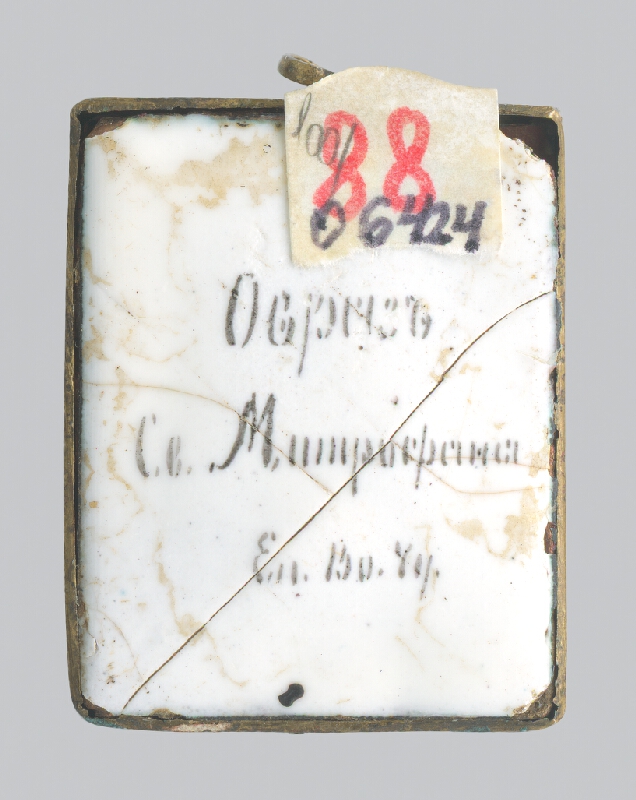 88
06424
Образъ
Св. Митрофания
Еп. Во. Чу.